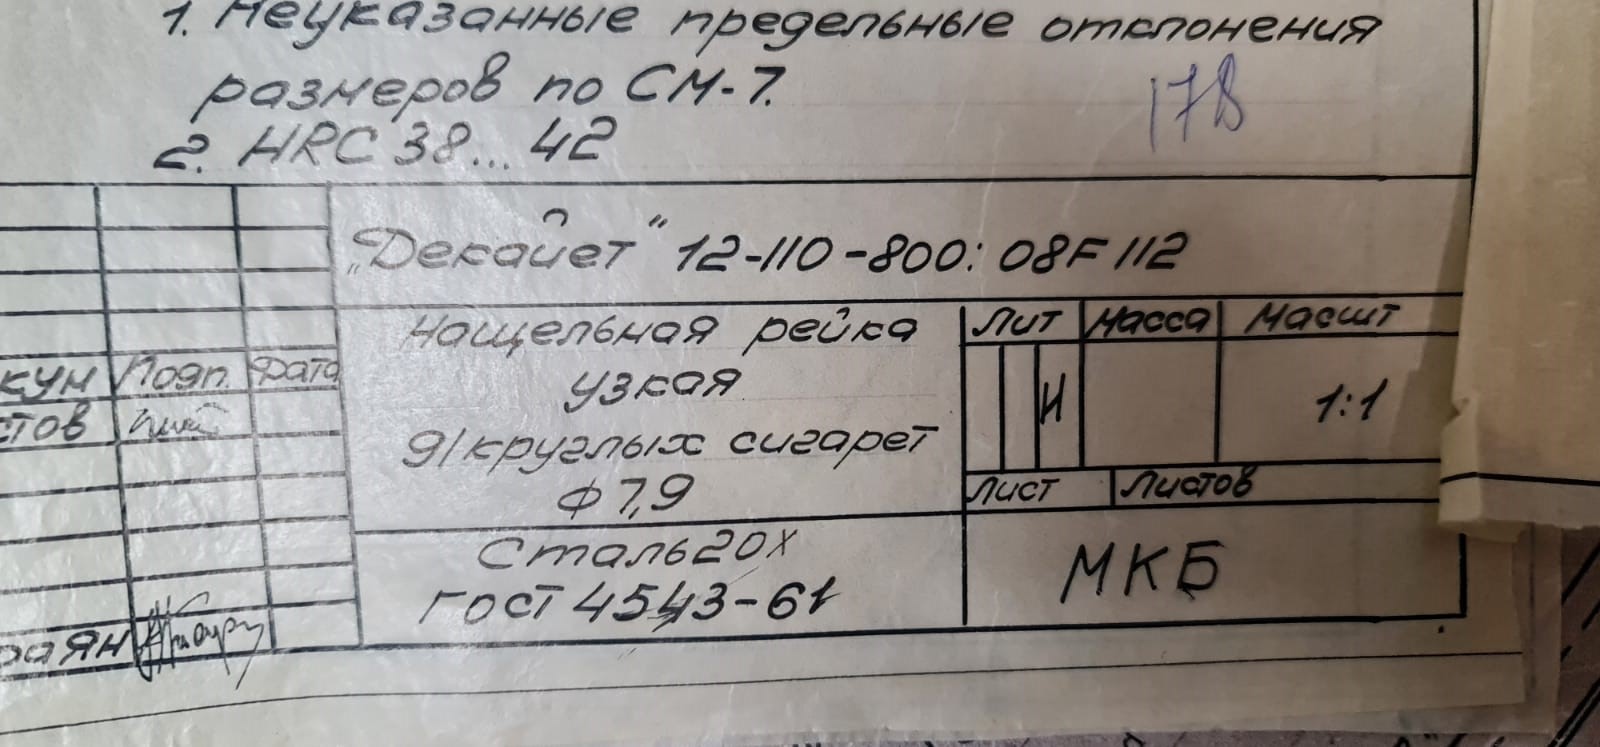 1. Неуказанные предельные отклонения
размеров по СМ-7.
178
2. HRC 38... 42
„Декайет" 12-110-800: 08F112
Нащельная рейка
узкая
д/круглых сигарет
Ф 7,9
Лит Масса Масшт
И 1:1
Лист Листов
кум Подп. Дата
стов
Сталь 20Х
ГОСТ 4543-61
МКБ
раян